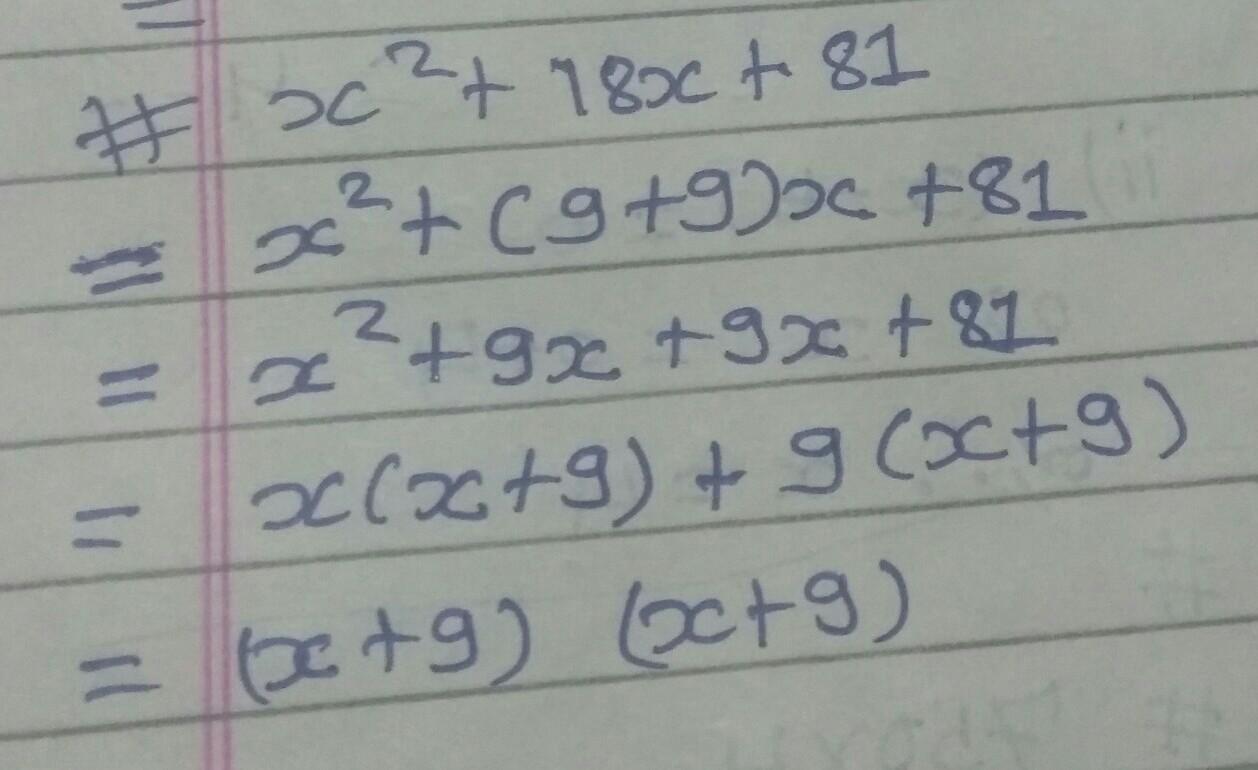 # x² + 18x + 81
= x² + (9+9)x + 81
= x² + 9x + 9x + 81
= x(x+9) + 9(x+9)
= (x+9) (x+9)